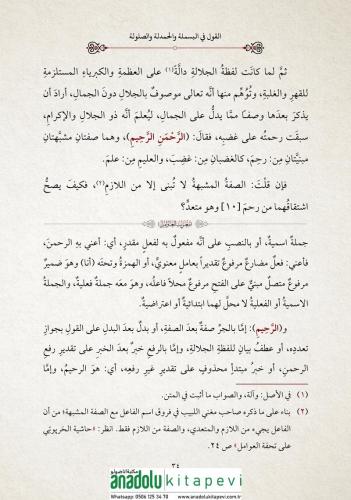 القول في البسملة والحمدلة والصلولة
ثمَّ لما كانَت لفظةُ الجلالةِ دالَّةً(١) على العظمةِ والكبرياءِ المستلزمةِ
للقهرِ والغلبةِ، وتُوُهِّم منها أنَّه تعالى موصوفٌ بالجلالِ دونَ الجمالِ، أرادَ أن
يذكرَ بعدَها وصفًا ممَّا يدلُّ على الجمالِ، ليُعلمَ أنَّه ذو الجلالِ والإكرامِ،
سبقَت رحمتُه على غضبِه، فقالَ: (الرَّحْمَنِ الرَّحِيمِ)، وهما صفتانِ مشبَّهتانِ
مبنيَّتانِ مِن: رحِمَ، كالغضبانِ مِن: غضِبَ، والعليمِ مِن: علمَ.
فإن قلتَ: الصفةُ المشبهةُ لا تُبنى إلا من اللازمِ(٢)، فكيفَ يصحُّ
اشتقاقُهما من رحمَ [١٠] وهو متعدٍّ؟
جملةٌ اسميةٌ، أو بالنصبِ على أنَّه مفعول به لفعلٍ مقدرٍ، أي: أعني بهِ الرحمنَ،
فأعني: فعلٌ مضارعٌ مرفوعٌ تقديراً بعاملٍ معنويٍّ، أو الهمزةُ وتحتَه (أنا) وهوَ ضميرٌ
مرفوعٌ متصلٌ مبنيٌّ على الفتحِ مرفوعٌ محلاً فاعلُه، وهوَ معَه جملةٌ فعليةٌ، والجملةُ
الاسميةُ أو الفعليةُ لا محلَّ لهما ابتدائيةٌ أو اعتراضيةٌ.
و(الرَّحِيمِ): إمَّا بالجرِّ صفةٌ بعدَ الصفةِ، أو بدلٌ بعدَ البدلِ على القولِ بجوازِ
تعددِه، أو عطفُ بيانٍ للفظةِ الجلالةِ، وإمَّا بالرفعِ خبرٌ بعدَ الخبرِ على تقديرِ رفعِ
الرحمنِ، أو خبرُ مبتدأٍ محذوفٍ على تقديرِ غيرِ رفعِه، أي: هوَ الرحيمُ، وإمَّا
(١) في الأصل: وآلة، والصواب ما أثبت في المتن.
(٢) بناء على ما ذكره صاحب مغني اللبيب في فروق اسم الفاعل مع الصفة المشبهة «من أن
الفاعل يجيء من اللازم والمتعدي، والصفة من اللازم فقط. انظر: «حاشية الخربوتي
على تحفة العوامل» ص ٢٤.
٣٤
anadolukitapevi
Whatsapp: 0506 125 34 70 www.anadolukitapevi.com